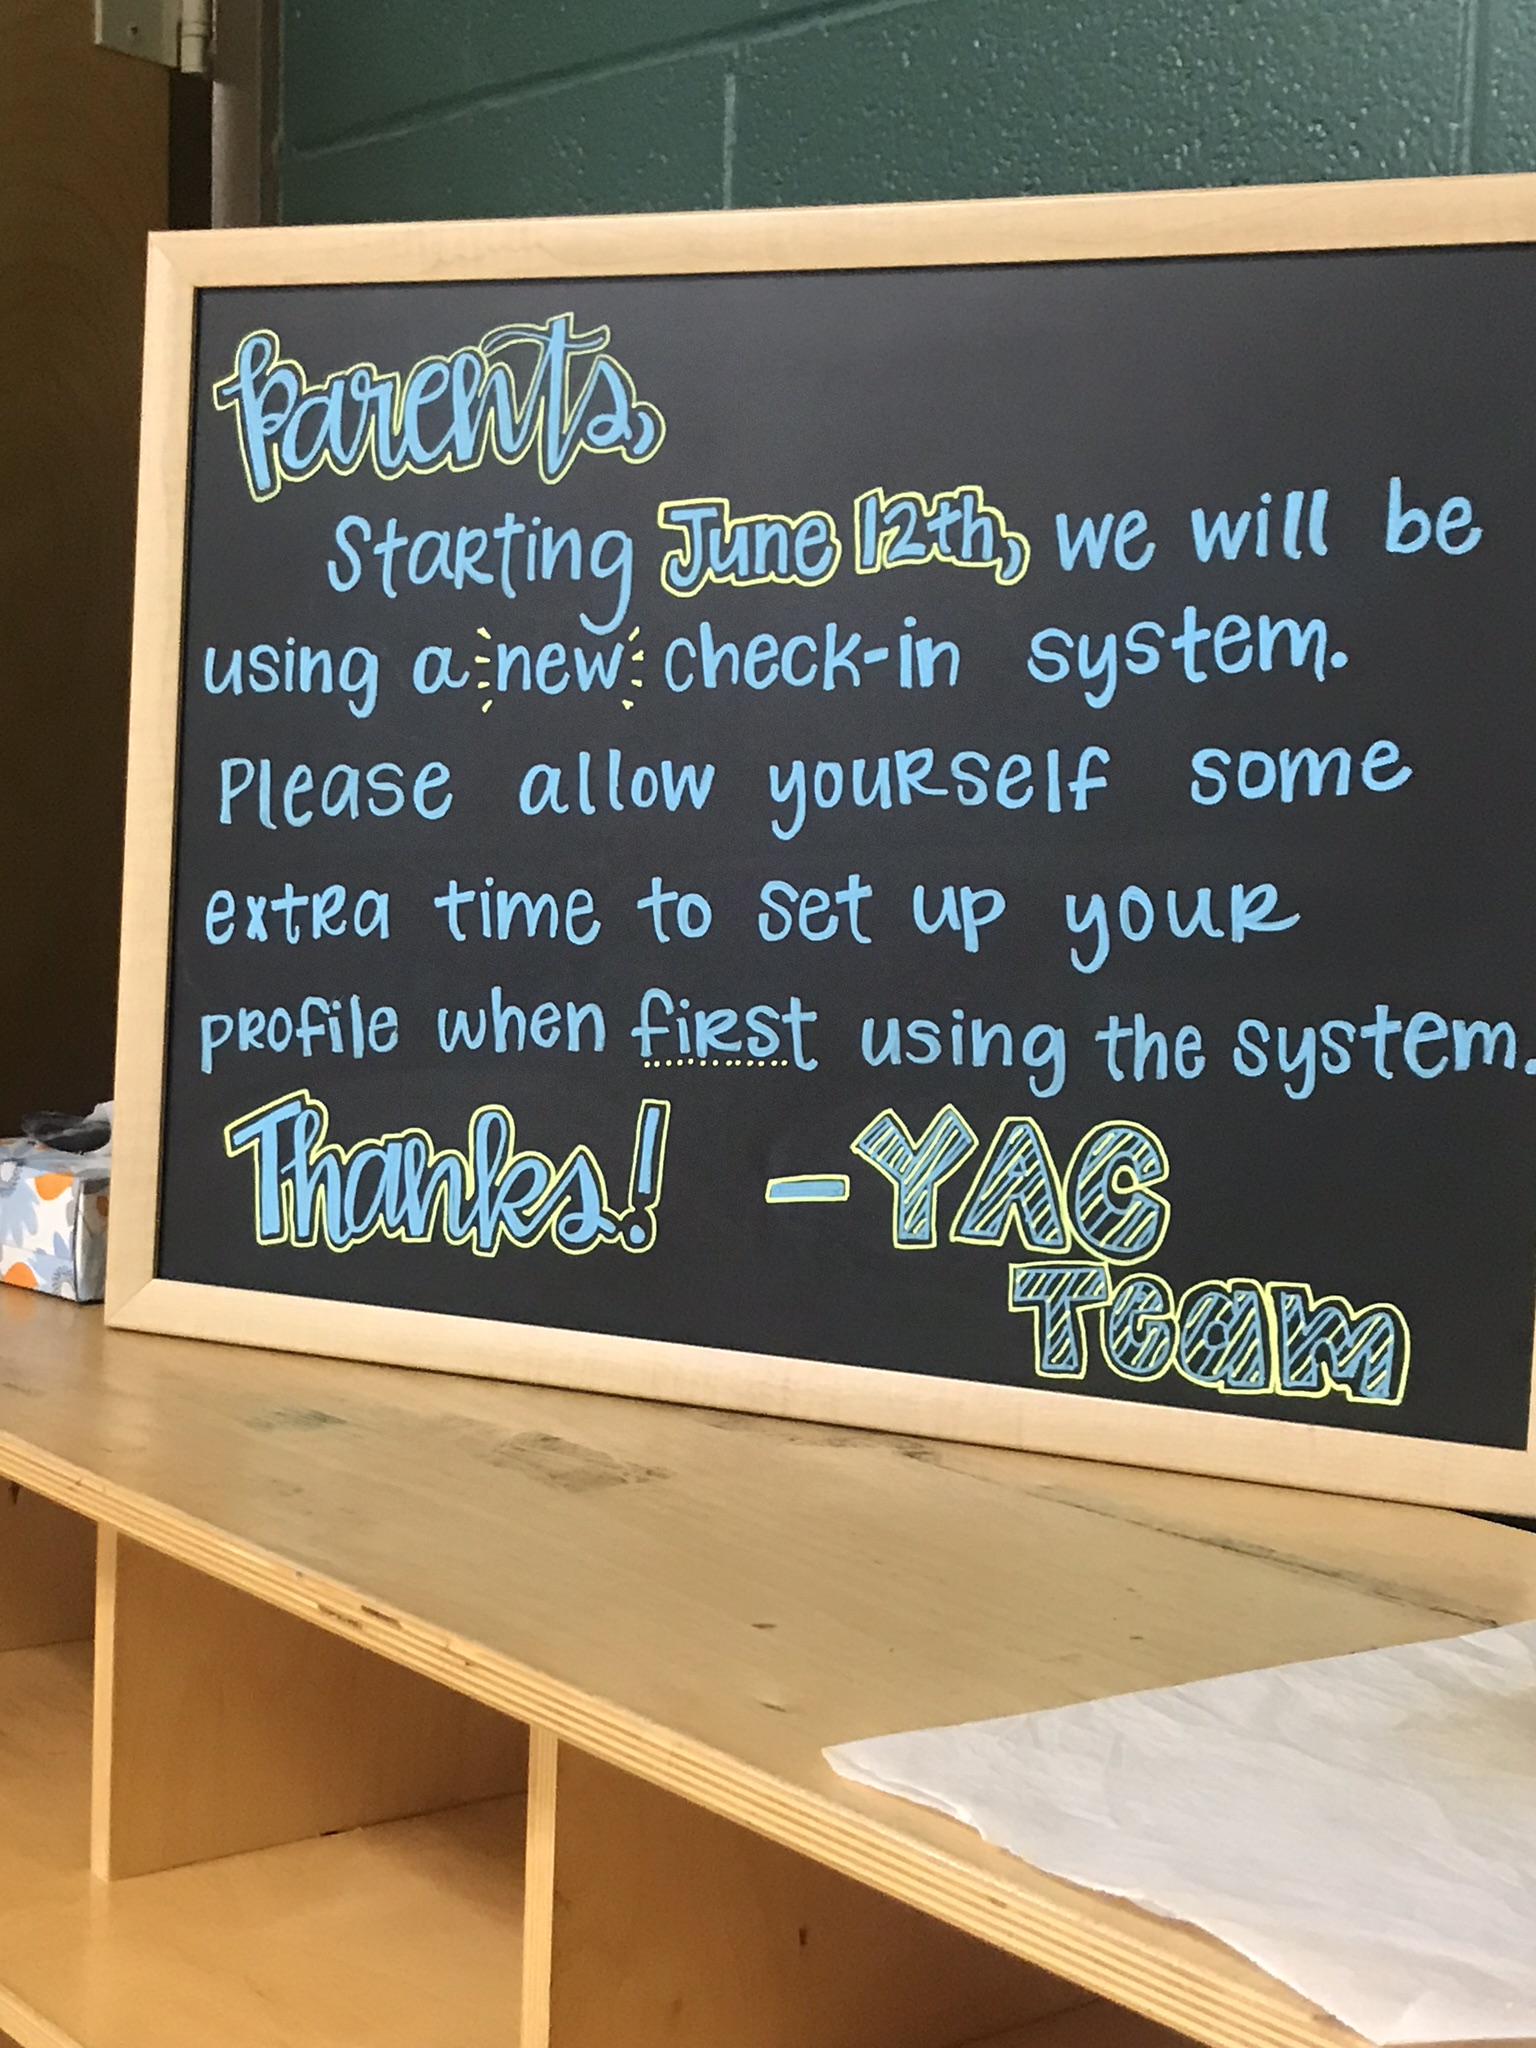 Parents,
Starting June 12th, we will be
using a new check-in system.
Please allow yourself some
extra time to set up your
profile when first using the system.
Thanks! -YAC
Team